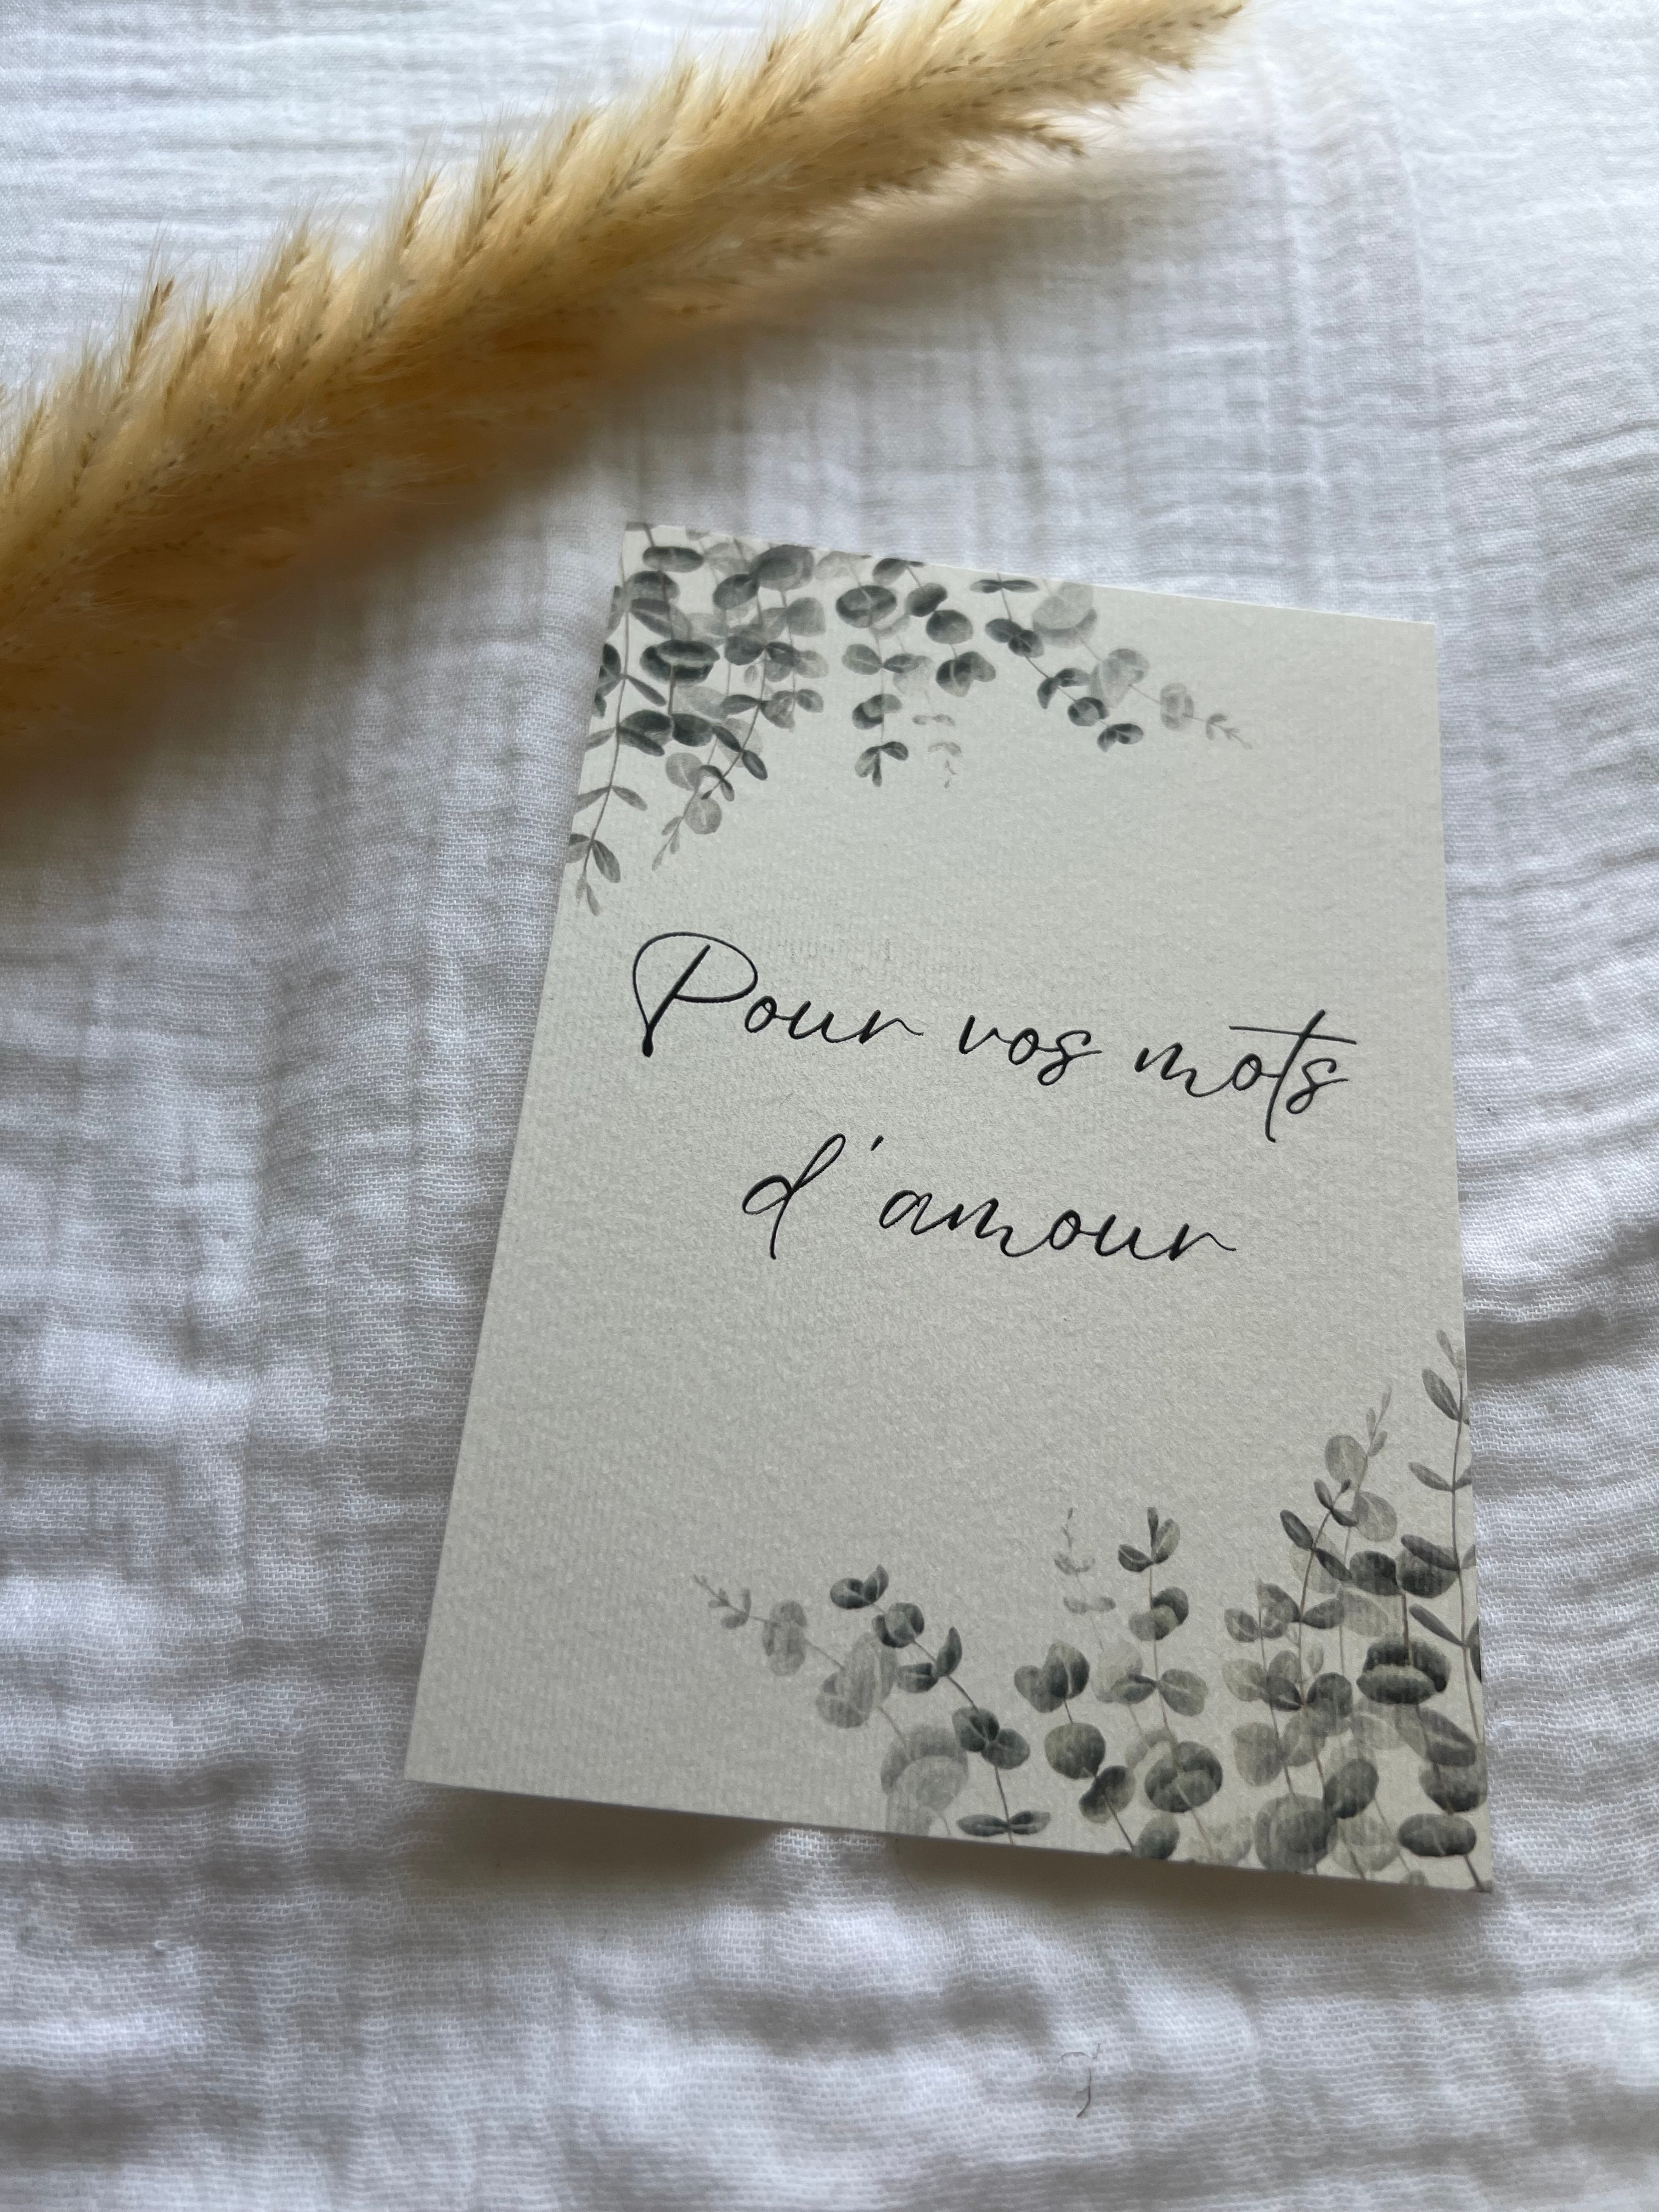 Pour vos mots
d'amour